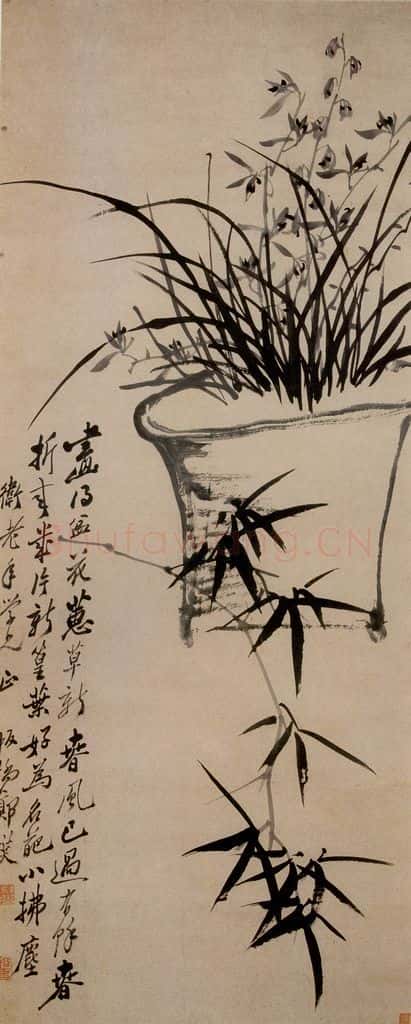 畫得盆花蕙草新春風已過有餘春
折來幾片新篁葉好為名葩小拂塵
衛老年學兄正 板橋鄭燮
ShufaWang.CN